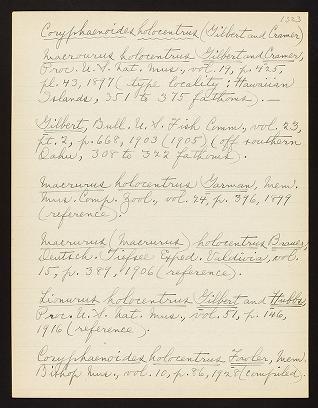 1323
Coryphaenoides holocentrus (Gilbert and Cramer)
Macrourus holocentrus Gilbert and Cramer,
Proc. U. S. Nat. Mus., vol. 19, p. 425,
pl. 43, 1897 (type locality: Hawaiian
Islands, 351 to 375 fathoms). —
Gilbert, Bull. U. S. Fish Comm., vol. 23,
pt. 2, p. 668, 1903 (1905) (off southern
Oahu, 308 to 322 fathoms).
Macrurus holocentrus Garman, Mem.
Mus. Comp. Zool., vol. 24, p. 396, 1899
(reference).
Macrurus (Macrurus) holocentrus Brauer,
Deutsch. Tiefsee Exped. Valdivia, vol.
15, p. 389, 1906 (reference).
Lionurus holocentrus Gilbert and Hubbs,
Proc. U. S. Nat. Mus., vol. 51, p. 146,
1916 (reference).
Coryphaenoides holocentrus Fowler, Mem.
Bishop Mus., vol. 10, p. 86, 1928 (compiled).